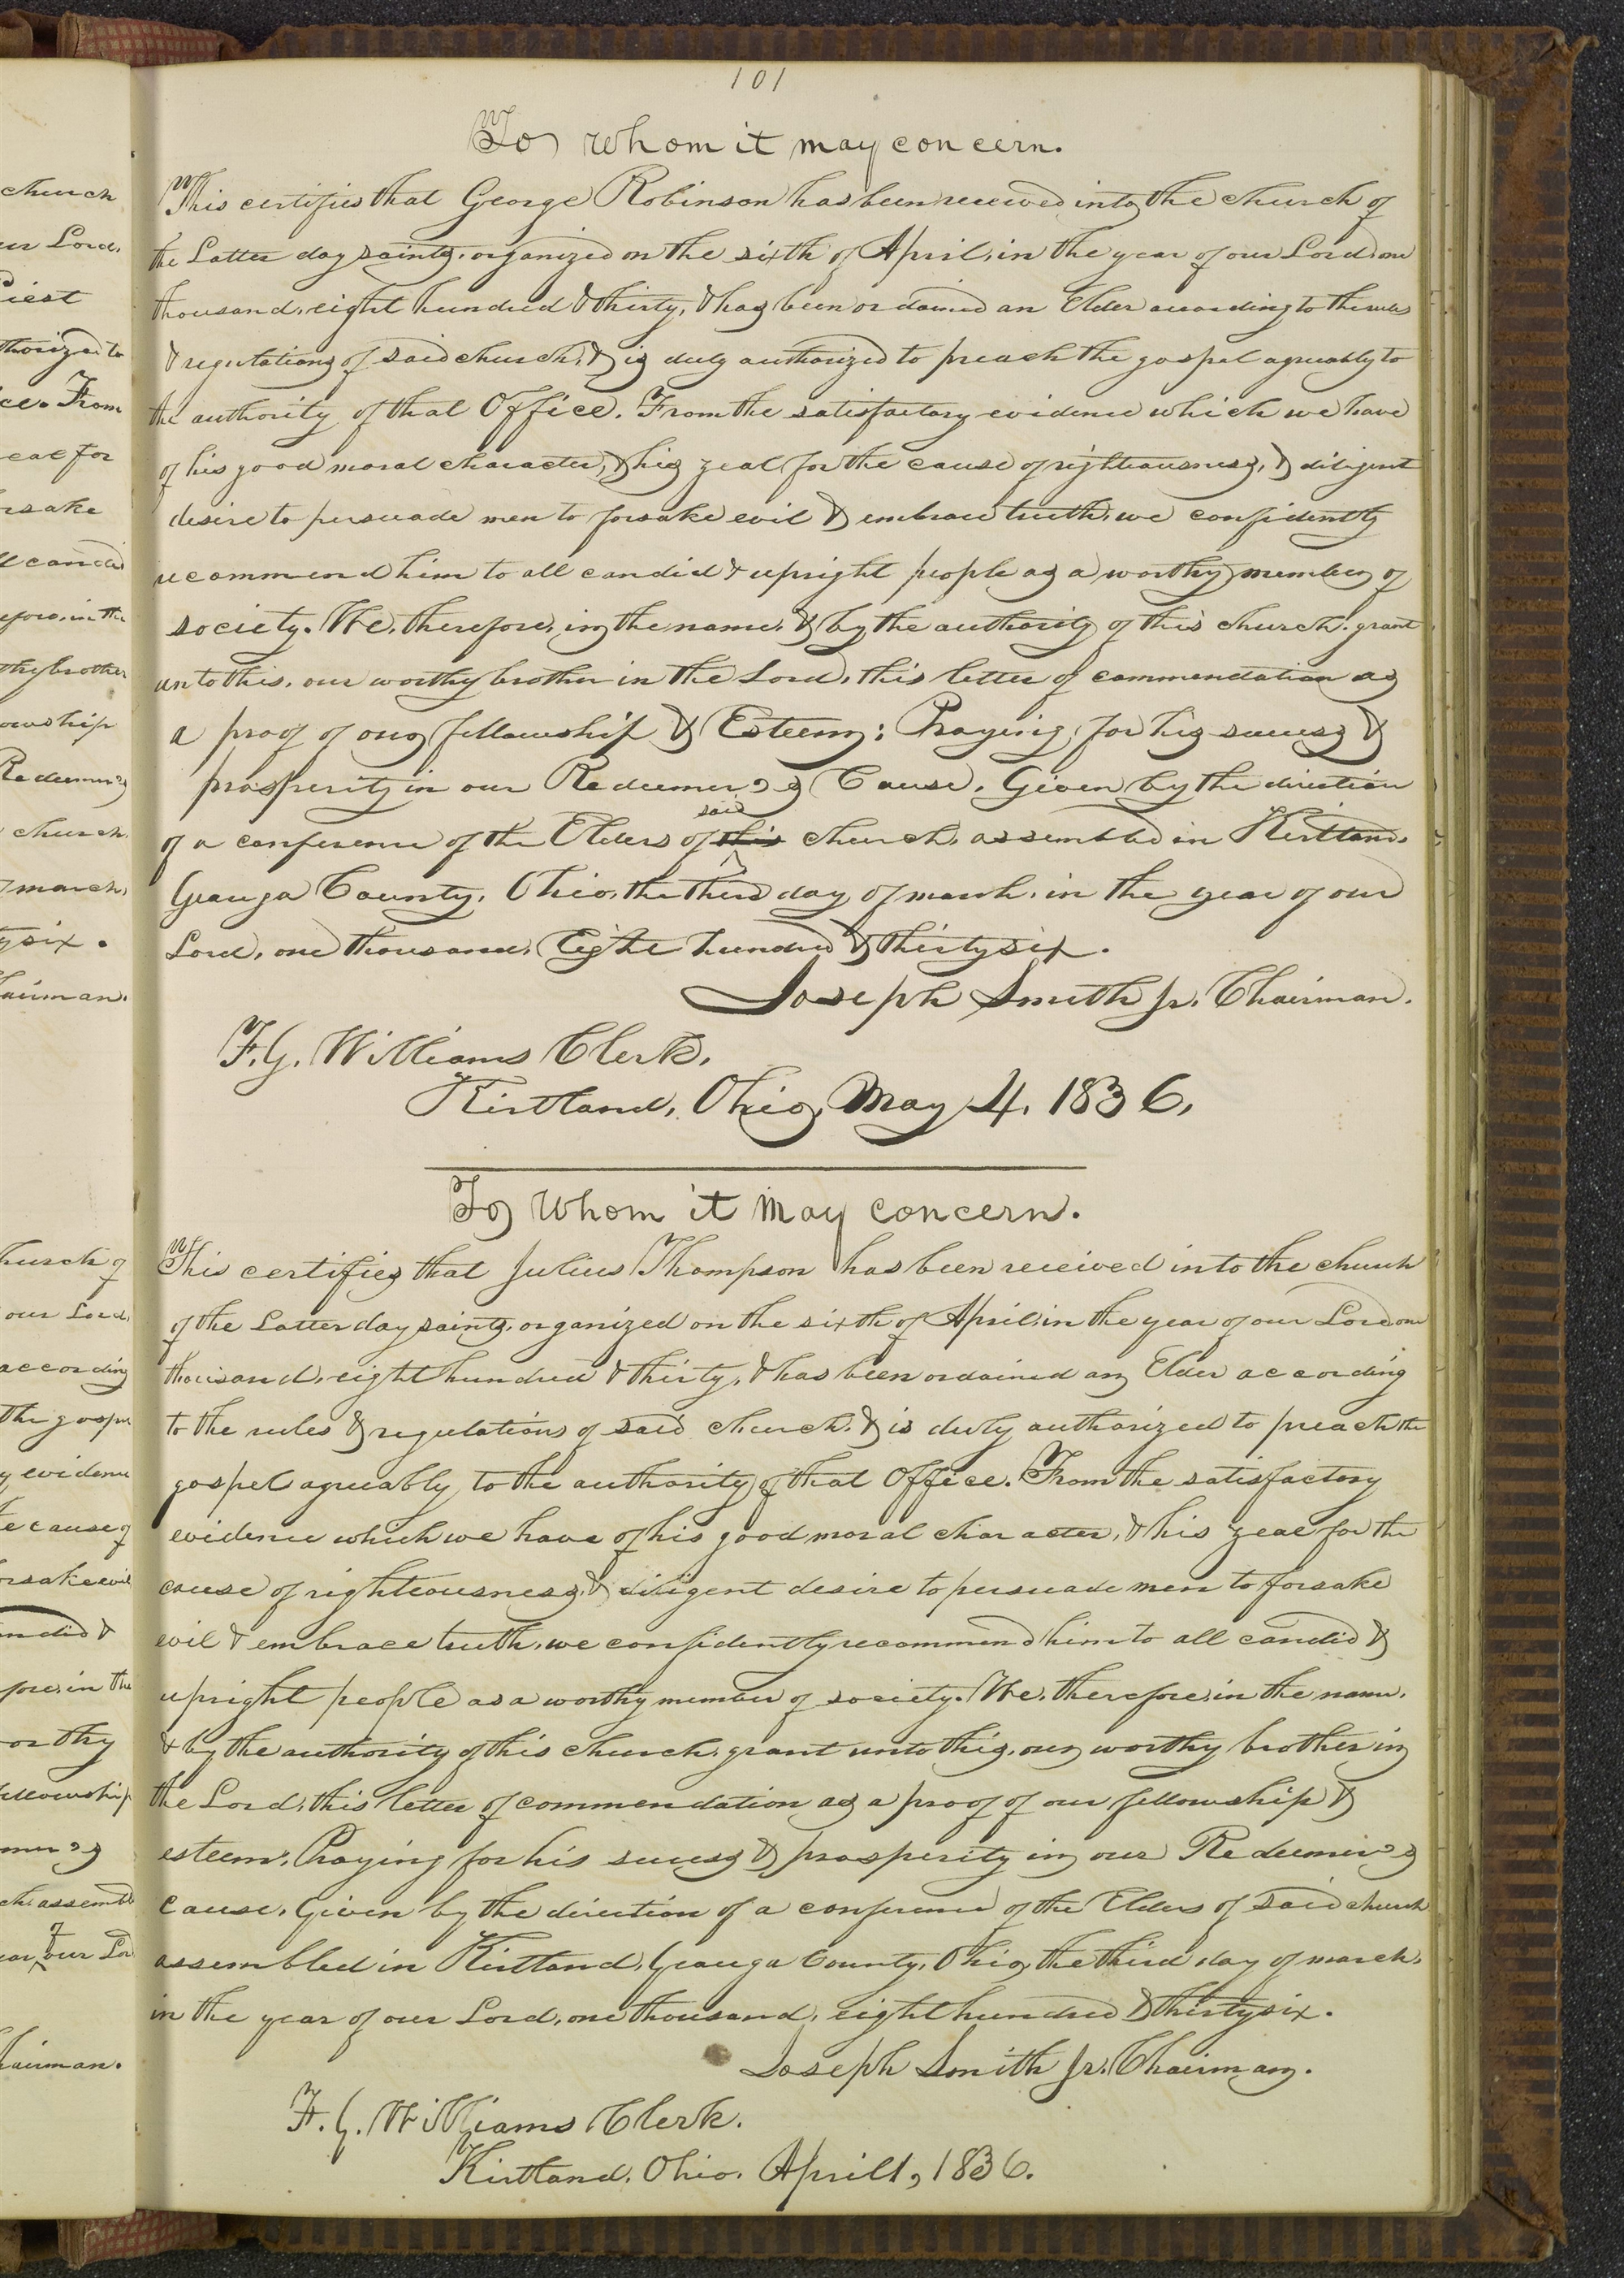 101
To whom it may concern.
This certifies that George Robinson has been received into the church of
the Latter day saints, organized on the sixth of April, in the year of our Lord, one
thousand, eight hundred & thirty, & has been ordained an Elder according to the rules
& regulations of said church, & is duly authorized to preach the gospel agreeably to
the authority of that Office. From the satisfactory evidence which we have
of his good moral character, & his zeal for the cause of righteousness, & diligent
desire to persuade men to forsake evil & embrace truth, we confidently
recommend him to all candid & upright people as a worthy member of
society. We, therefore, in the name, & by the authority of this church, grant
unto this, our worthy brother in the Lord, this letter of commendation as
a proof of our fellowship & Esteem; Praying, for his success &
prosperity in our Redeemer's Cause. Given by the direction
of a conference of the Elders of this said church, assembled in Kirtland,
Geauga County, Ohio, the third day of march, in the year of our
Lord, one thousand, Eight hundred & thirty six.
Joseph Smith Jr. Chairman.
F. G. Williams Clerk.
Kirtland, Ohio, May 4, 1836.
To whom it may concern.
This certifies that Julius Thompson has been received into the church
of the Latter day saints, organized on the sixth of April, in the year of our Lord one
thousand, eight hundred & thirty, & has been ordained an Elder according
to the rules & regulations of said church, & is duly authorized to preach the
gospel agreeably to the authority of that Office. From the satisfactory
evidence which we have of his good moral character, & his zeal for the
cause of righteousness, & diligent desire to persuade men to forsake
evil & embrace truth, we confidently recommend him to all candid &
upright people as a worthy member of society. We, therefore, in the name,
& by the authority of this church, grant unto this, our worthy brother in
the Lord, this letter of commendation as a proof of our fellowship &
esteem, Praying for his success & prosperity in our Redeemer's
cause. Given by the direction of a conference of the Elders of said church
assembled in Kirtland, Geauga County, Ohio, the third day of march,
in the year of our Lord, one thousand, eight hundred & thirty six.
Joseph Smith Jr. Chairman.
F. G. Williams Clerk.
Kirtland, Ohio. April 1, 1836.